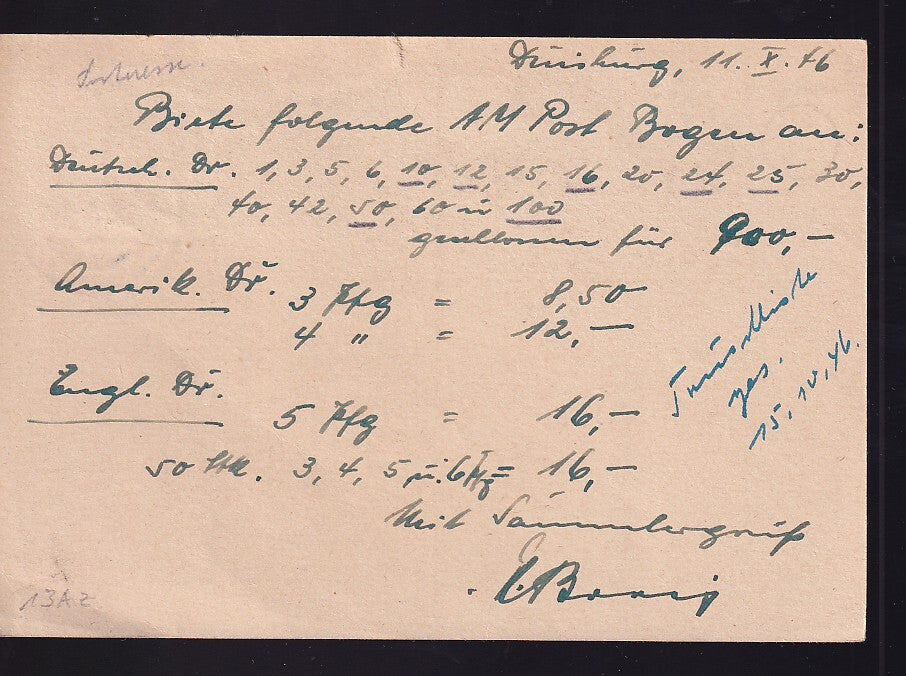 Interesse.
Duisburg, 11. X. 46
Biete folgende AM Post Bogen an:
Deutsch. Dr. 1, 3, 5, 6, 10, 12, 15, 16, 20, 24, 25, 30,
40, 42, 50, 60 u 100
geschlossen für 900,—
Amerik. Dr. 3 Pfg = 8,50
4 " = 12,—
Engl. Dr.
5 Pfg = 16,—
50 Stk. 3, 4, 5 u. 6 Pfg = 16,—
Tauschliste
ges.
15, 10, 46.
Mit Sammlergruß
13A2